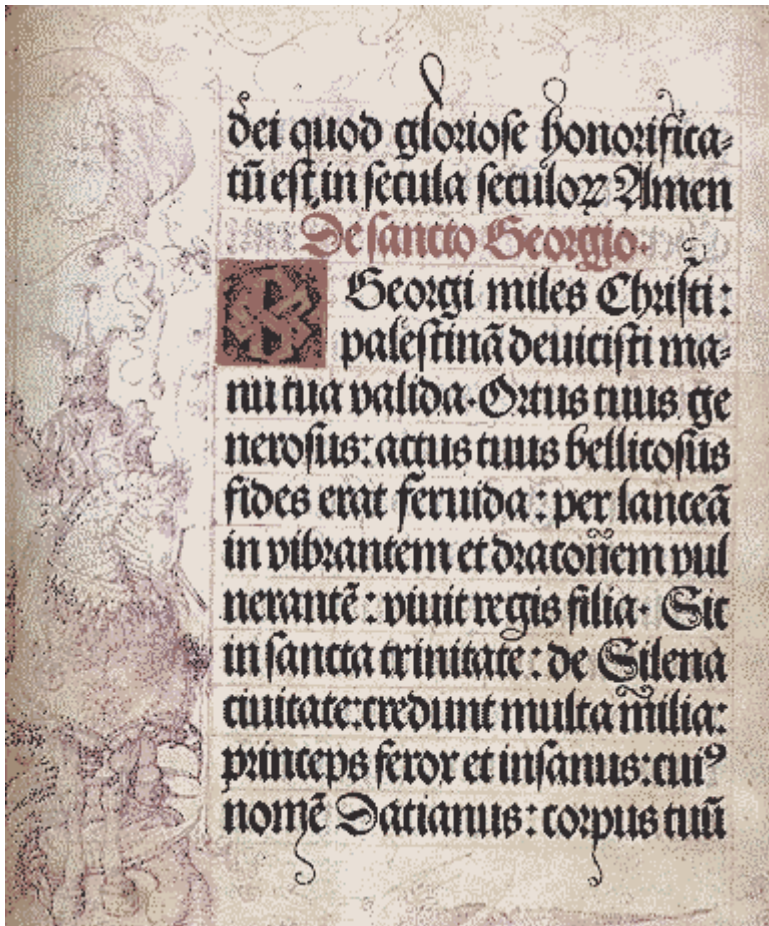 dei quod gloriose honorifica-
tū est, in secula seculoꝝ Amen
De sancto Georgio.
Georgi miles Christi:
palestinā deuicisti ma-
nu tua valida. Ortus tuus ge
nerosus: actus tuus bellicosus
fides erat feruida: per lanceā
in vibrantem et draconem vul
nerantē: viuit regis filia. Sic
in sancta trinitate: de Silena
ciuitate: credunt multa milia:
princeps ferox et insanus: cuiꝰ
nomē Datianus: corpus tuū